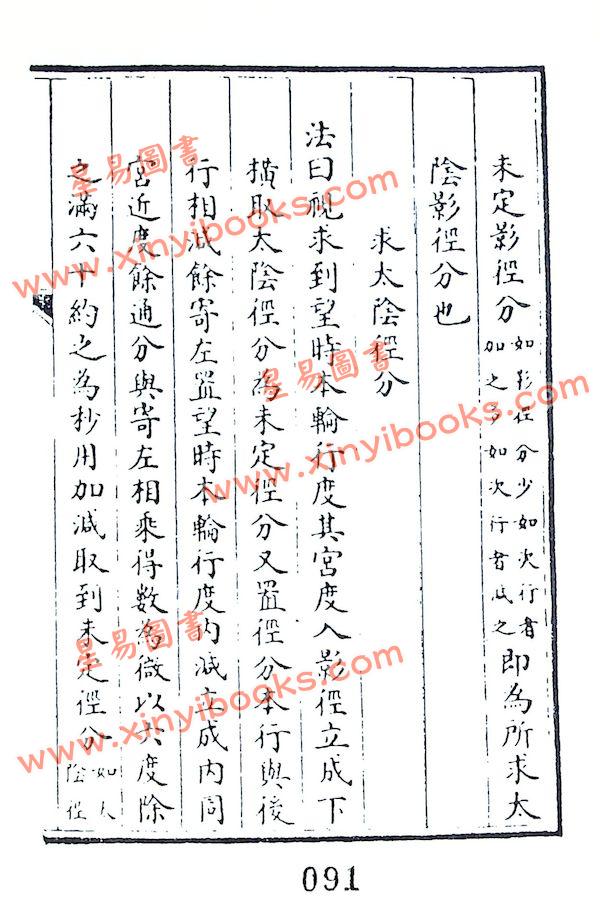 未定影徑分如影徑分少如次行者加之多如次行者減之即為所求太
陰影徑分也
求太陰徑分
法曰視求到望時本輪行度其宮度入影徑立成下
橫取太陰徑分為未定徑分又置徑分本行與後
行相減餘寄左置望時本輪行度內減立成內同
宮近度餘通分與寄左相乘得數為微以六度除
之滿六十約之為秒用加減取到未定徑分如太陰徑
星易圖書
www.xinyibooks.com
星易圖書
www.xinyibooks.com
星易圖書
www.xinyibooks.com
091